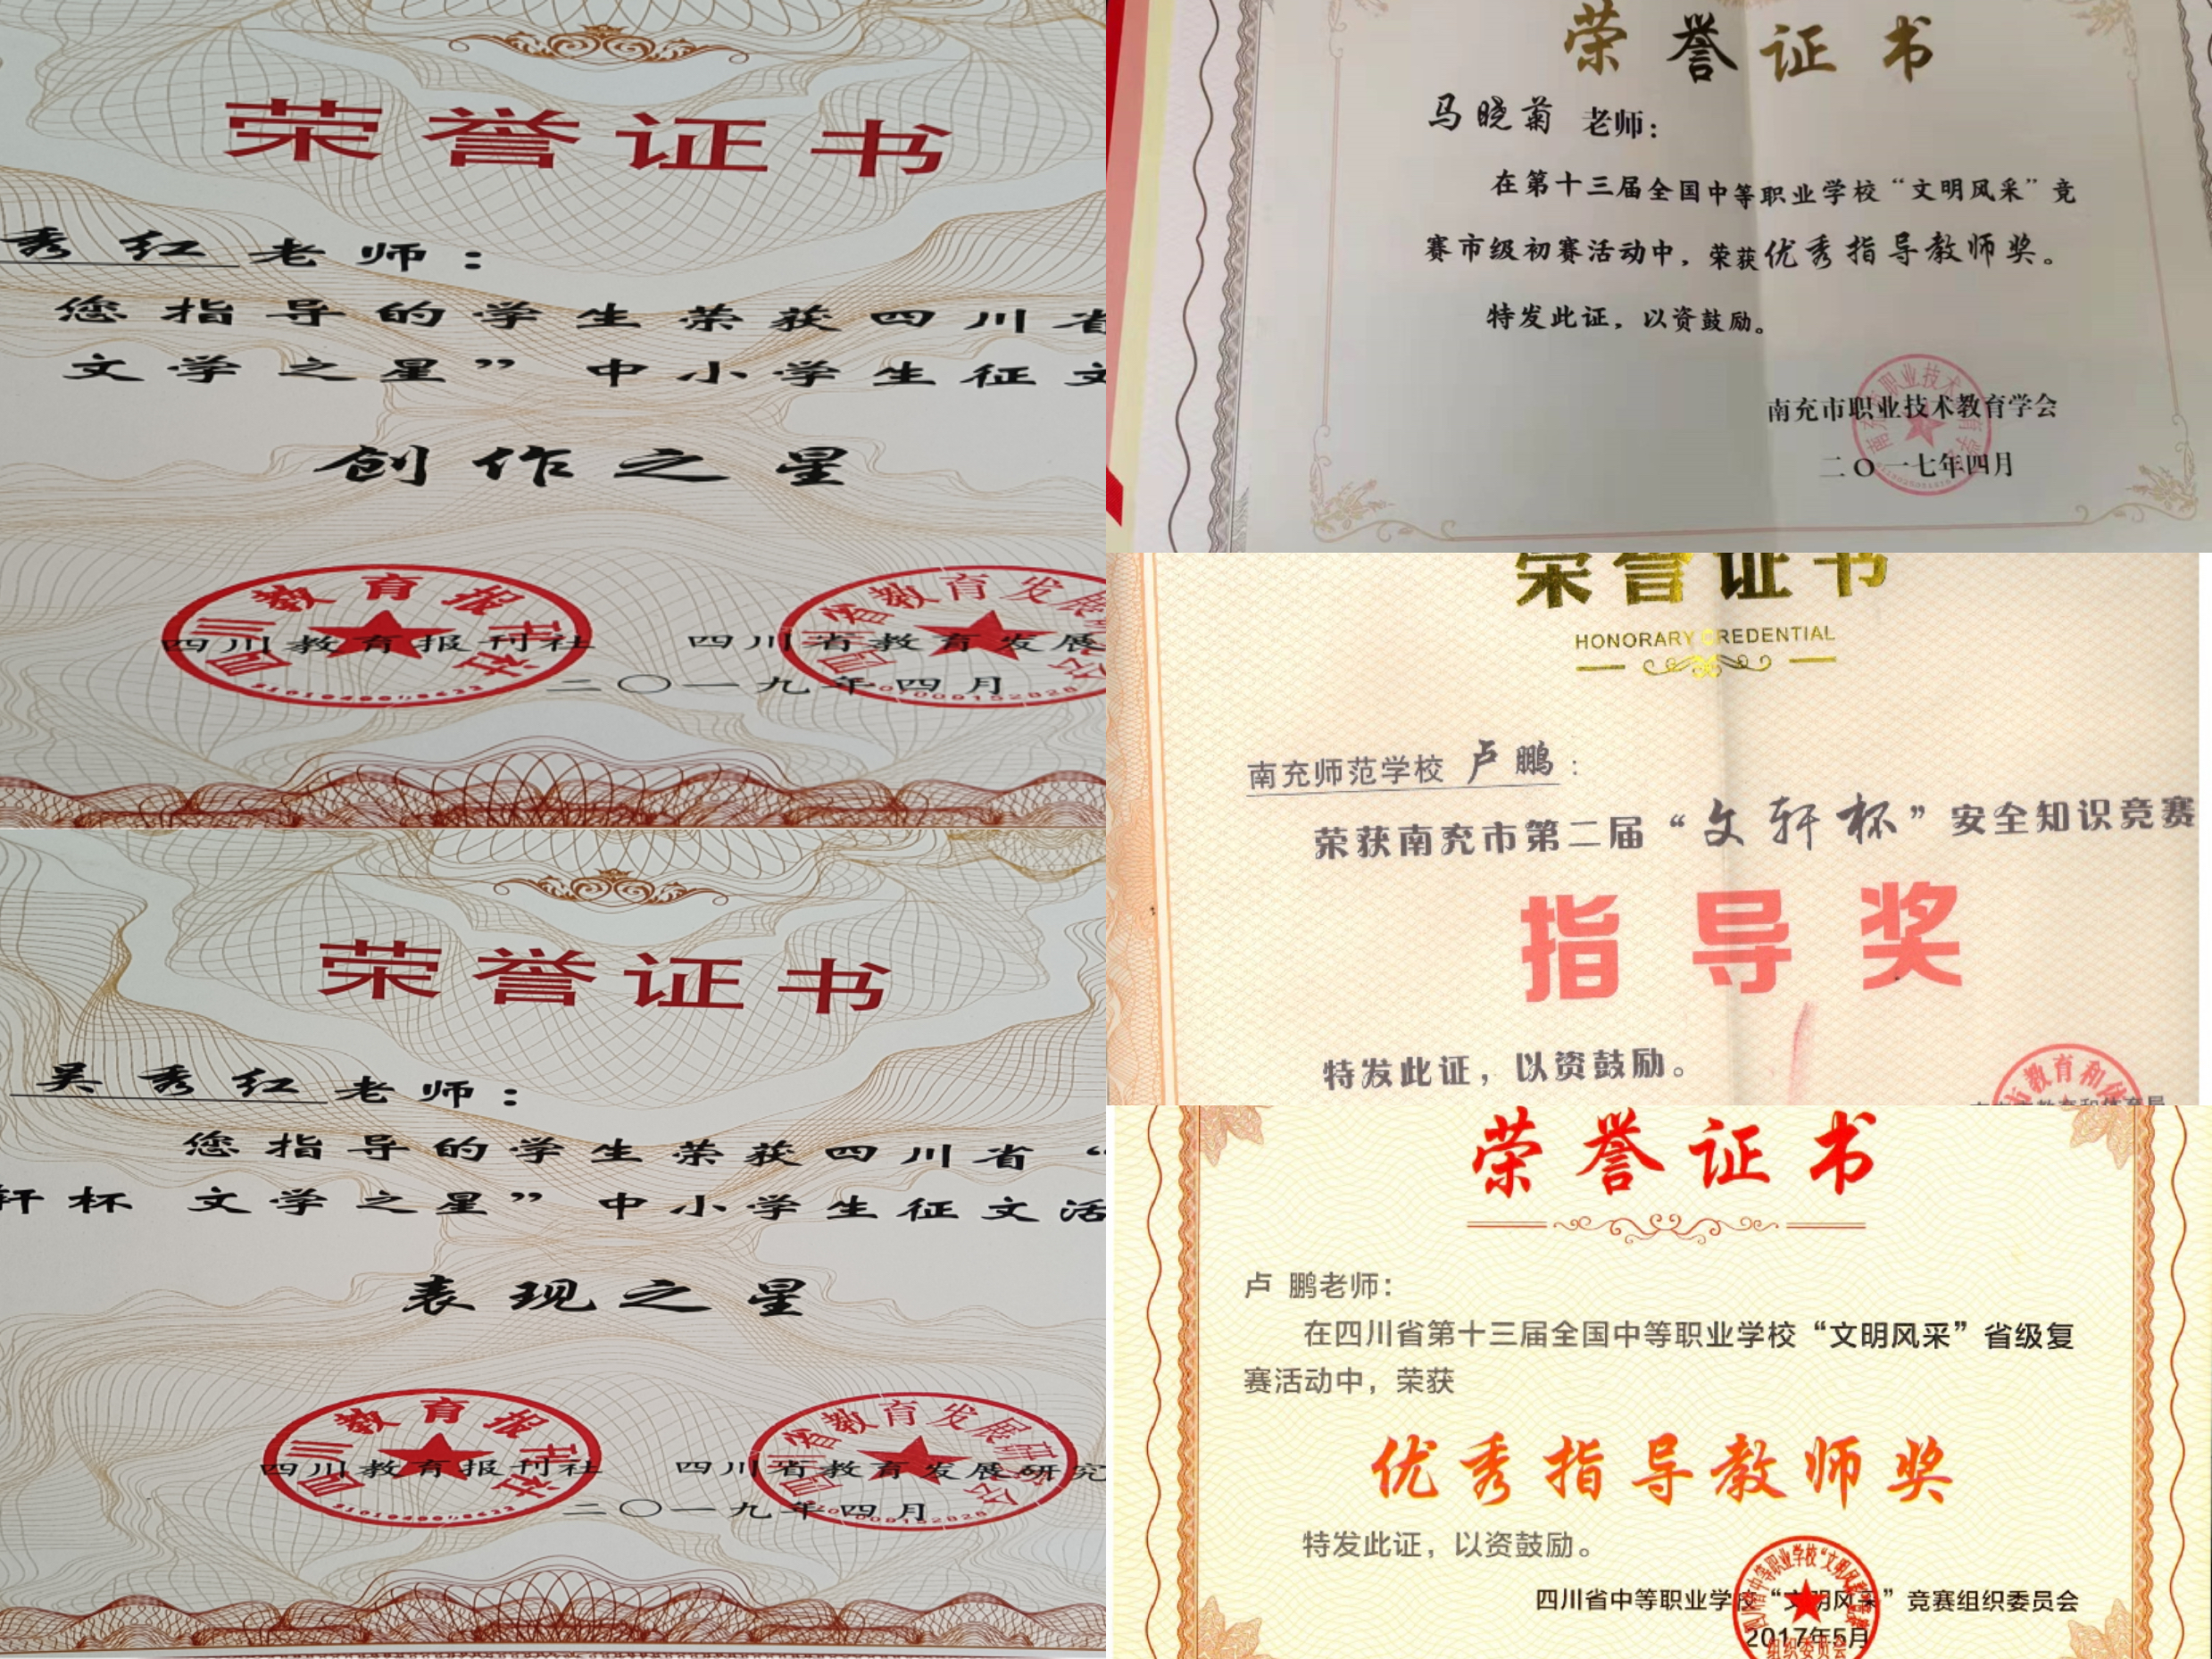 荣誉证书
秀红老师：
您指导的学生荣获四川省
文学之星”中小学生征文
创作之星
四川教育报刊社 四川省教育发展
二〇一九年四月
荣誉证书
吴秀红老师：
您指导的学生荣获四川省“
轩杯 文学之星”中小学生征文活
表现之星
四川教育报刊社 四川省教育发展研究
二〇一九年四月
荣誉证书
马晓菊 老师：
在第十三届全国中等职业学校“文明风采”竞
赛市级初赛活动中，荣获优秀指导教师奖。
特发此证，以资鼓励。
南充市职业技术教育学会
二〇一七年四月
荣誉证书
HONORARY CREDENTIAL
南充师范学校 卢鹏：
荣获南充市第二届“文轩杯”安全知识竞赛
指导奖
特发此证，以资鼓励。
荣誉证书
卢 鹏老师：
在四川省第十三届全国中等职业学校“文明风采”省级复
赛活动中，荣获
优秀指导教师奖
特发此证，以资鼓励。
四川省中等职业学校“文明风采”竞赛组织委员会
2017年5月